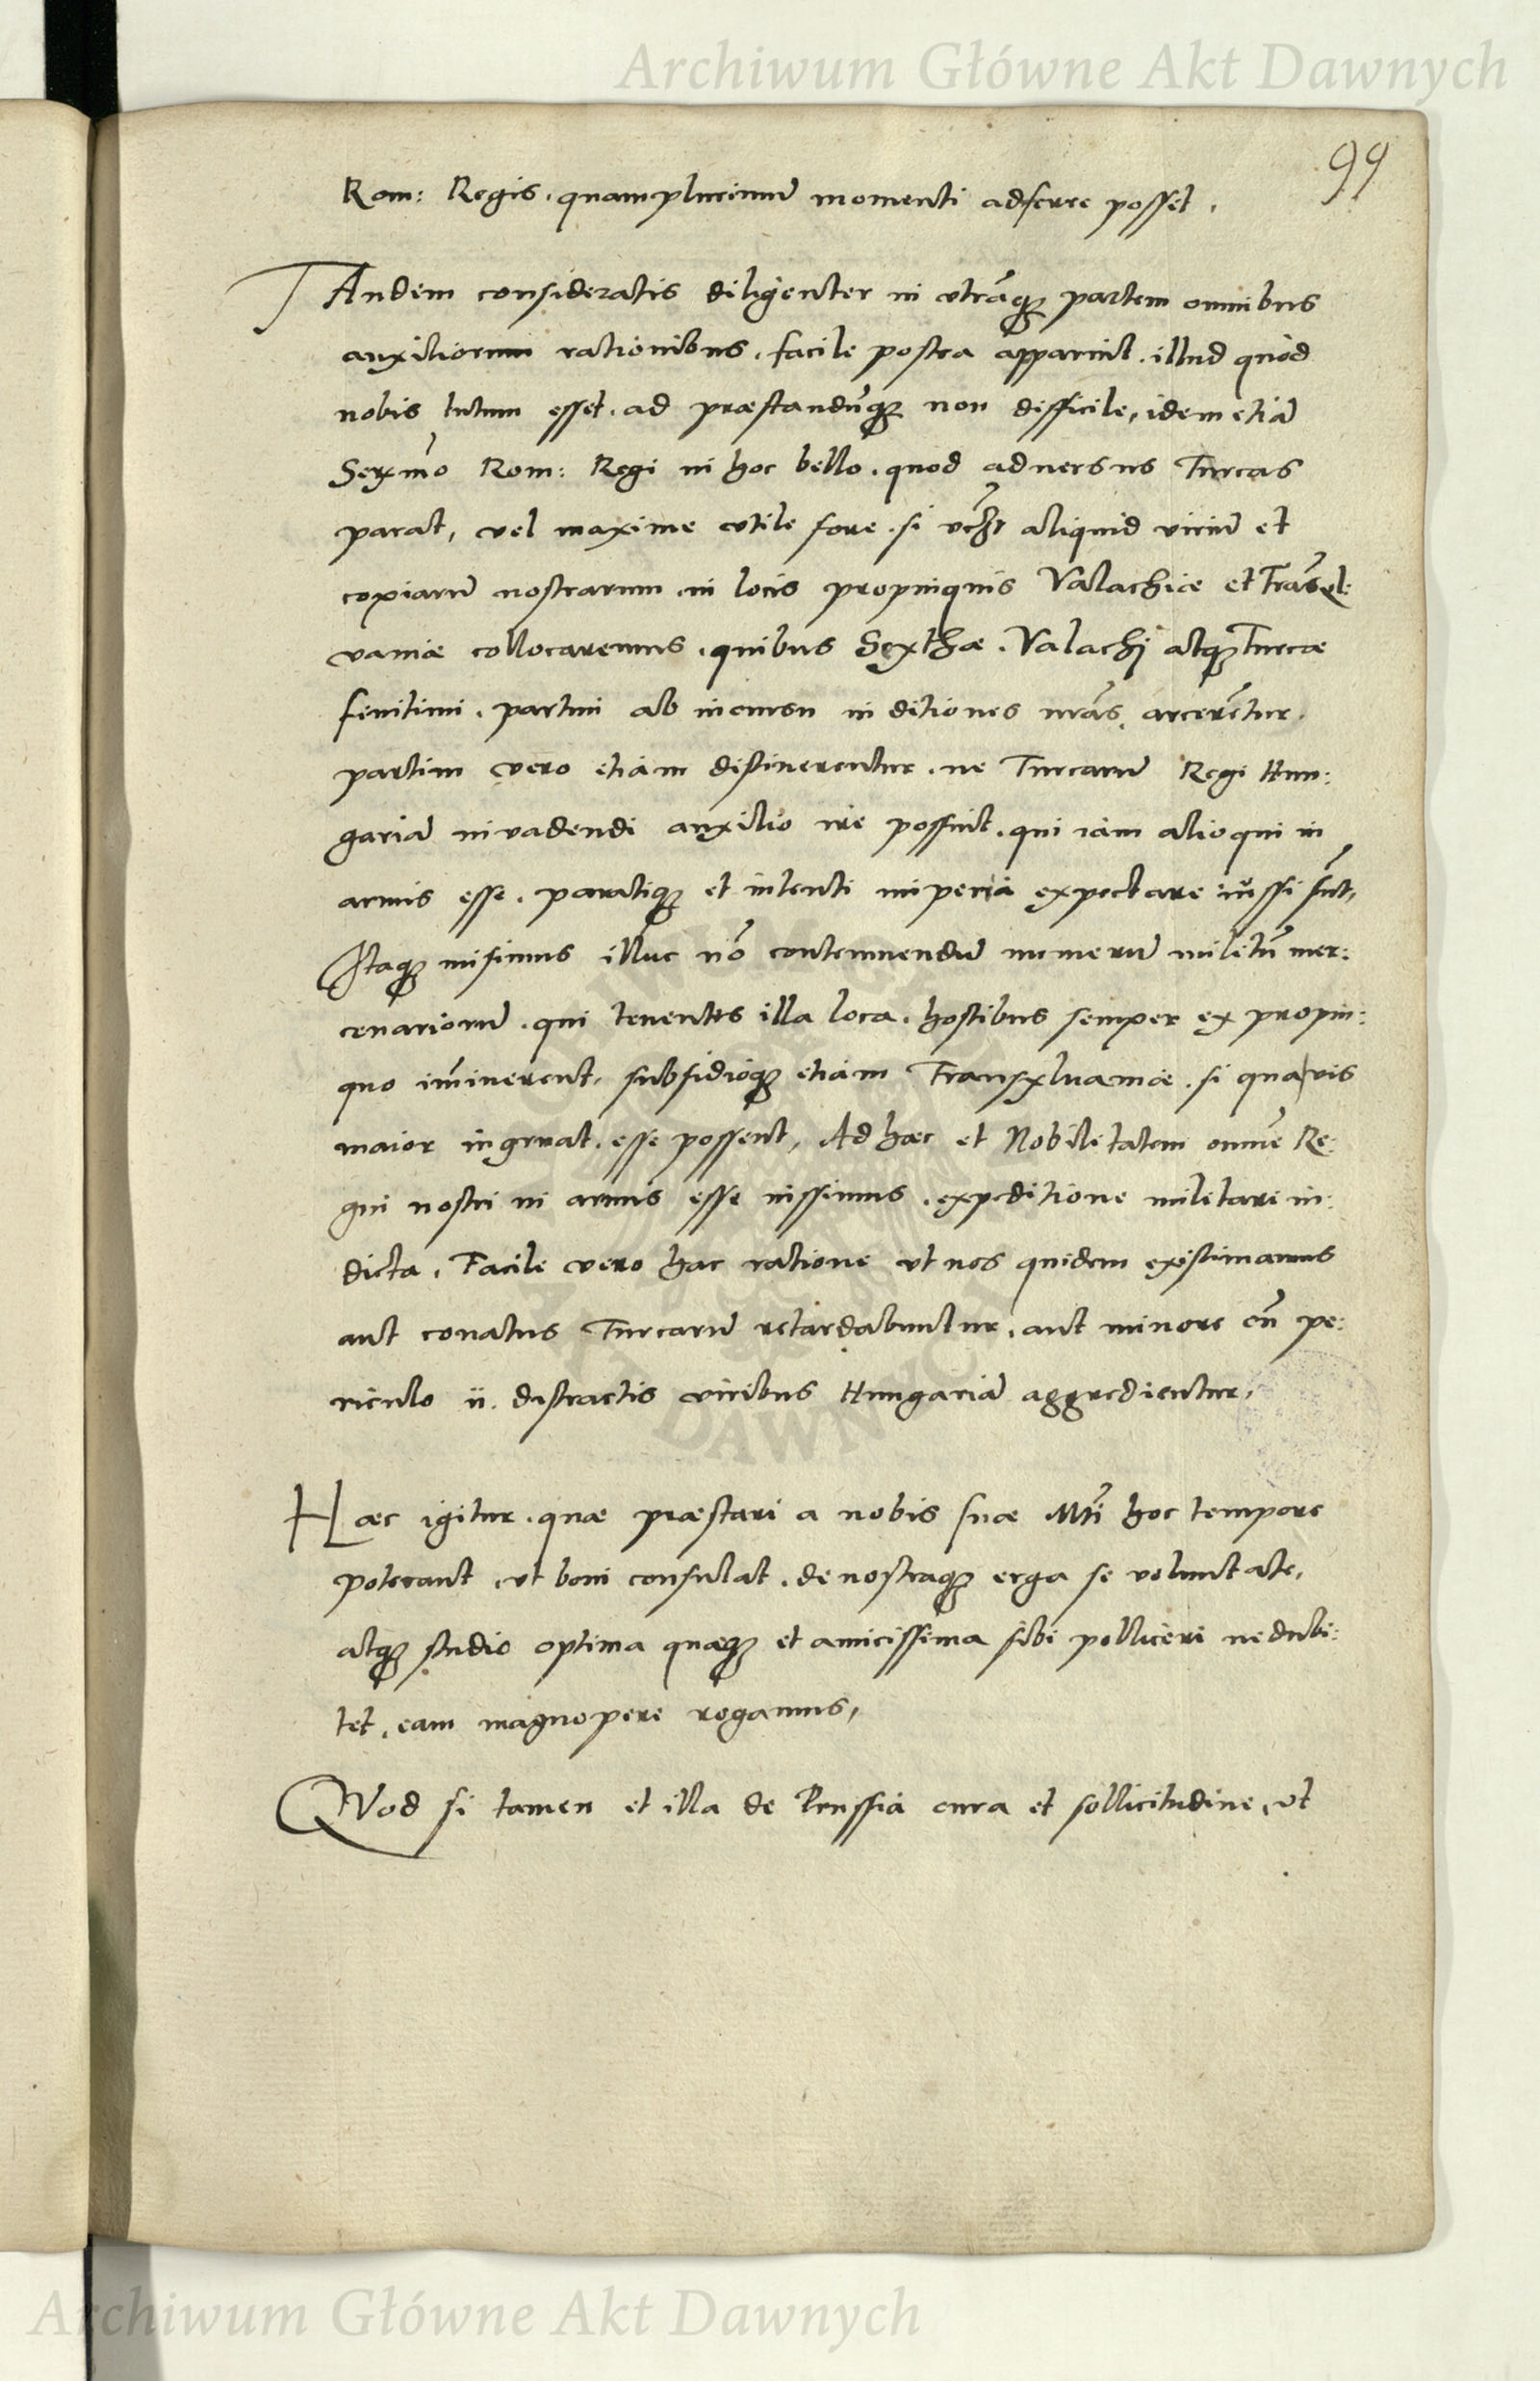 Archiwum Główne Akt Dawnych
99
Rom: Regis. quamplurimū momenti adferre posset.
TAndem consideratis diligenter in vtrāq3 partem omnibus
auxiliorum rationibus. facile postea apparuit. illud quod
nobis tutum esset. ad præstandūq3 non difficile, idem etiā
Serx̄mo Rom: Regi in hoc bello. quod aduersus Turcas
parat, vel maxime vtile fore. si aliquid viriū et
copiarū nostrarum in locis propinquis Valachiæ et Trāsyl:
vaniæ collocaremus. quibus Scythæ. Valachi atq3 Turcæ
finitimi. partim ab incursu in ditiones nrās arcerētur.
partim vero etiam distinerentur. ne Turcarū Regi Hun:
gariā inuadendi auxilio ire possint. qui iam alioqui in
armis esse. paratiq3 et intenti imperia expectare iussi sūt,
Itaq3 misimus illuc nō contemnendū numerū militū mer:
cenariorū. qui tenentes illa loca. hostibus semper ex propin:
quo im̄inerent, subsidioq3 etiam Transyluaniæ. si qua vis
maior ingruat. esse possent, Ad hæc et Nobilitatem omnē Re:
gni nostri in armis esse iussimus. expeditione militari in:
dicta. Facile vero hac ratione vt nos quidem existimamus
aut conatus Turcarū retardabuntur. aut minore cū pe:
riculo ii. distractis viribus Hungariā aggredientur,
Hæc igitur. quæ præstari a nobis suæ Mti hoc tempore
poterant vt boni consulat. de nostraq3 erga se voluntate,
atq3 studio optima quæq3 et amicissima sibi polliceri ne dubi:
tet. eam magnopere rogamus,
QVod si tamen et illa de Prussia cura et sollicitudine vt
Archiwum Główne Akt Dawnych